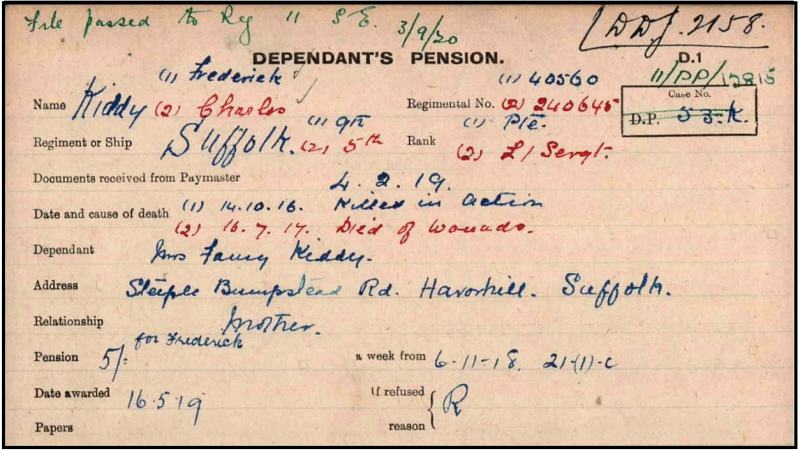 File passed to Reg 11 S.E. 3/9/20
DDJ. 2158.
DEPENDANT'S PENSION.
D.1
11/DP/12815
(1) Frederick
Name Kiddy (2) Charles
(1) 40560
Regimental No. (2) 240645
Case No.
D.P. 53-K.
(1) 9th
Regiment or Ship Suffolk. (2) 5th
(1) Pte.
Rank (2) L/Sergt.
Documents received from Paymaster 4.2.19.
Date and cause of death (1) 14.10.16. Killed in action
(2) 16.7.17. Died of Wounds.
Dependant Mrs Fanny Kiddy.
Address Steeple Bumpstead Rd. Haverhill. Suffolk.
Relationship Mother.
for Frederick
Pension 5/- a week from 6-11-18. 21-(1)-c
Date awarded 16.5.19 If refused
reason R
Papers